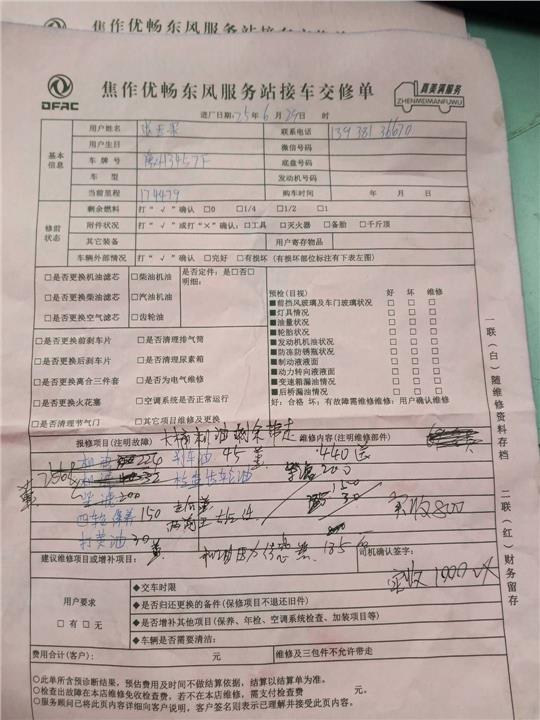 焦作优畅东风服务站接车交修单
DFAC
焦作优畅东风服务站接车交修单
真美满服务
ZHENMEIMANFUWU
进厂日期:25年6月29日 时
基本信息
用户姓名 联系电话 13938136670
用户生日 微信号码
车牌号 底盘号码
车型 发动机号码
当前里程 174479 购车时间 年 月 日
修前状态
剩余燃料 打“√”确认 □0 □1/4 □1/2 □1
附件状况 打“√”或打“×”确认:□工具 □灭火器 □备胎 □千斤顶
其它装备 用户寄存物品
车辆外部情况 打“√”确认 □完好 □有损坏(有损坏部位标注有下表左图)
□是否更换机油滤芯 □柴油机油 是否定件:是□否□
明细:
□是否更换柴油滤芯 □汽油机油
□是否更换空气滤芯 □齿轮油
□是否更换前刹车片 □是否清理排气筒
□是否更换后刹车片 □是否清理尿素箱
□是否更换离合三件套 □是否为电气维修
□是否更换火花塞 □空调系统是否正常运行
□是否清理节气门 □其它项目维修及更换
预检(目视) 好 坏 维修
■前挡风玻璃及车门玻璃状况 □ □ □
■灯具情况 □ □ □
■油量状况 □ □ □
■轮胎状况 □ □ □
■发动机机油状况 □ □ □
■防冻防锈瓶状况 □ □ □
■制动液液面 □ □ □
■动力转向液液面 □ □ □
■变速箱漏油情况 □ □ □
■后桥漏油情况 □ □ □
好:合格 坏:有故障需维修维修:用户确认维修
报修项目(注明故障) 维修内容(注明维修部件)
机油 224 刹车油 45
440
200
四轮保养 150
打黄油 30
实收800
建议维修项目或增补项目: 机油压力传感器 185 司机确认签字:
实收1000
用户要求
□有 □无
◆交车时限
◆是否归还更换的备件(保修项目不退还旧件)
◆是否增补其他项目(保养、年检、空调系统检查、加装项目等)
◆车辆是否需要清洁:
费用合计(客户): 元 维修及三包件不允许带走
○此单所含预诊断结果,预估费用及时间不做结算依据,结算以结算单为准。
○检查出故障在本店维修免收检查费,若不在本店维修,需支付检查费 元。
○服务顾问已将此页内容详细向客户说明,客户签名则表示已理解并接受此页内容。
一联(白)随维修资料存档
二联(红)财务留存